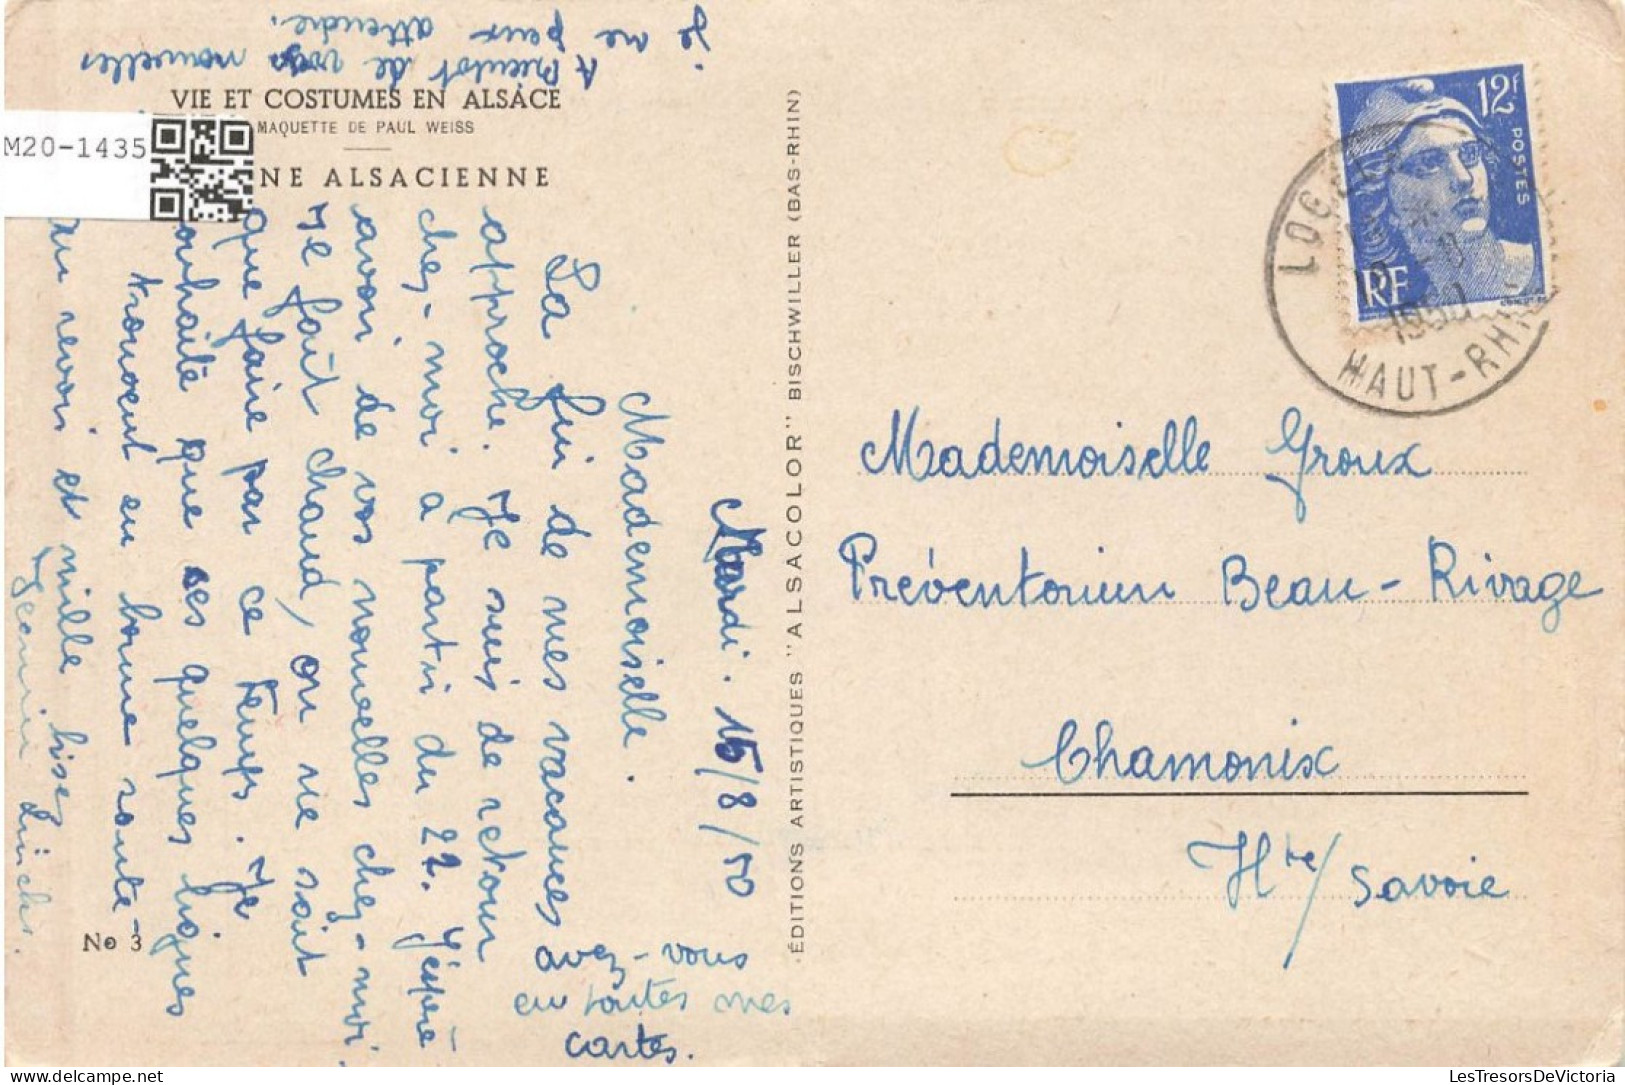 je ne peux attendre.
A Bientot de vos nouvelles
VIE ET COSTUMES EN ALSACE
MAQUETTE DE PAUL WEISS
NE ALSACIENNE
M20-1435
Mardi. 15/8/50
Mademoiselle.
La fin de mes vacances
approche. Je suis de retour
chez-moi a partir du 22. J'espère
avoir de vos nouvelles chez-moi.
Il fait chaud, on ne sait
que faire par ce temps. Je
souhaite que ses quelques lignes
trouvent en bonne santé-
au revoir et mille bises
avez-vous
eu toutes mes
cartes.
No 3
ÉDITIONS ARTISTIQUES "ALSACOLOR" BISCHWILLER (BAS-RHIN)
12F
POSTES
RF
1950
HAUT-RHIN
Mademoiselle Groux
Préventorium Beau-Rivage
Chamonix
Hte/Savoie
LesTresorsDeVictoria